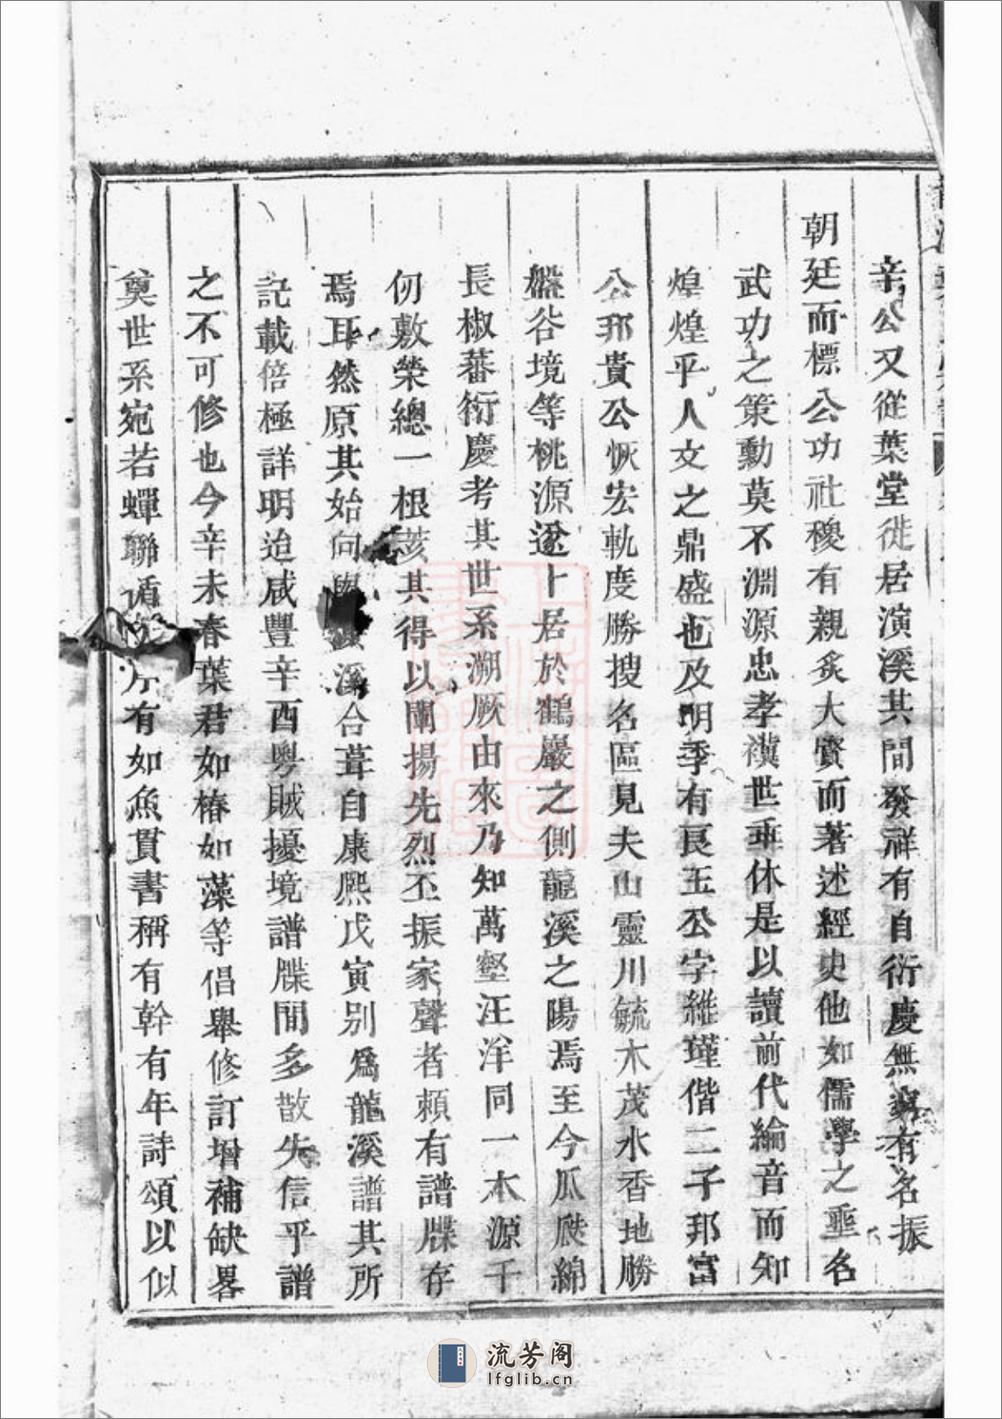 辛公又從葉堂徙居演溪其間發祥有自衍慶無窮有名振
朝廷而標公功社稷有親炙大賢而著述經史他如儒學之垂名
武功之策勳莫不淵源忠孝襈世垂休是以讀前代綸音而知
煌煌乎人文之鼎盛也及明季有長王公字維瑾偕二子邦富
公邦貴公恢宏軌度勝搜名區見夫山靈川毓木茂水香地勝
盤谷境等桃源遂卜居於鶴巖之側龍溪之陽焉至今瓜瓞綿
長椒蕃衍慶考其世系溯厥由來乃知萬壑汪洋同一本源千
仞敷榮總一根荄其得以闡揚先烈丕振家聲者賴有譜牒存
焉耳然原其始向與溪合葺自康熙戊寅別爲龍溪譜其所
記載倍極詳明迨咸豐辛酉粵賊擾境譜牒間多散失信乎譜
之不可修也今辛未春葉君如椿如藻等倡舉修訂增補缺畧
奠世系宛若蟬聯循有如魚貫書稱有幹有年詩頌以似
流芳阁
lfglib.cn